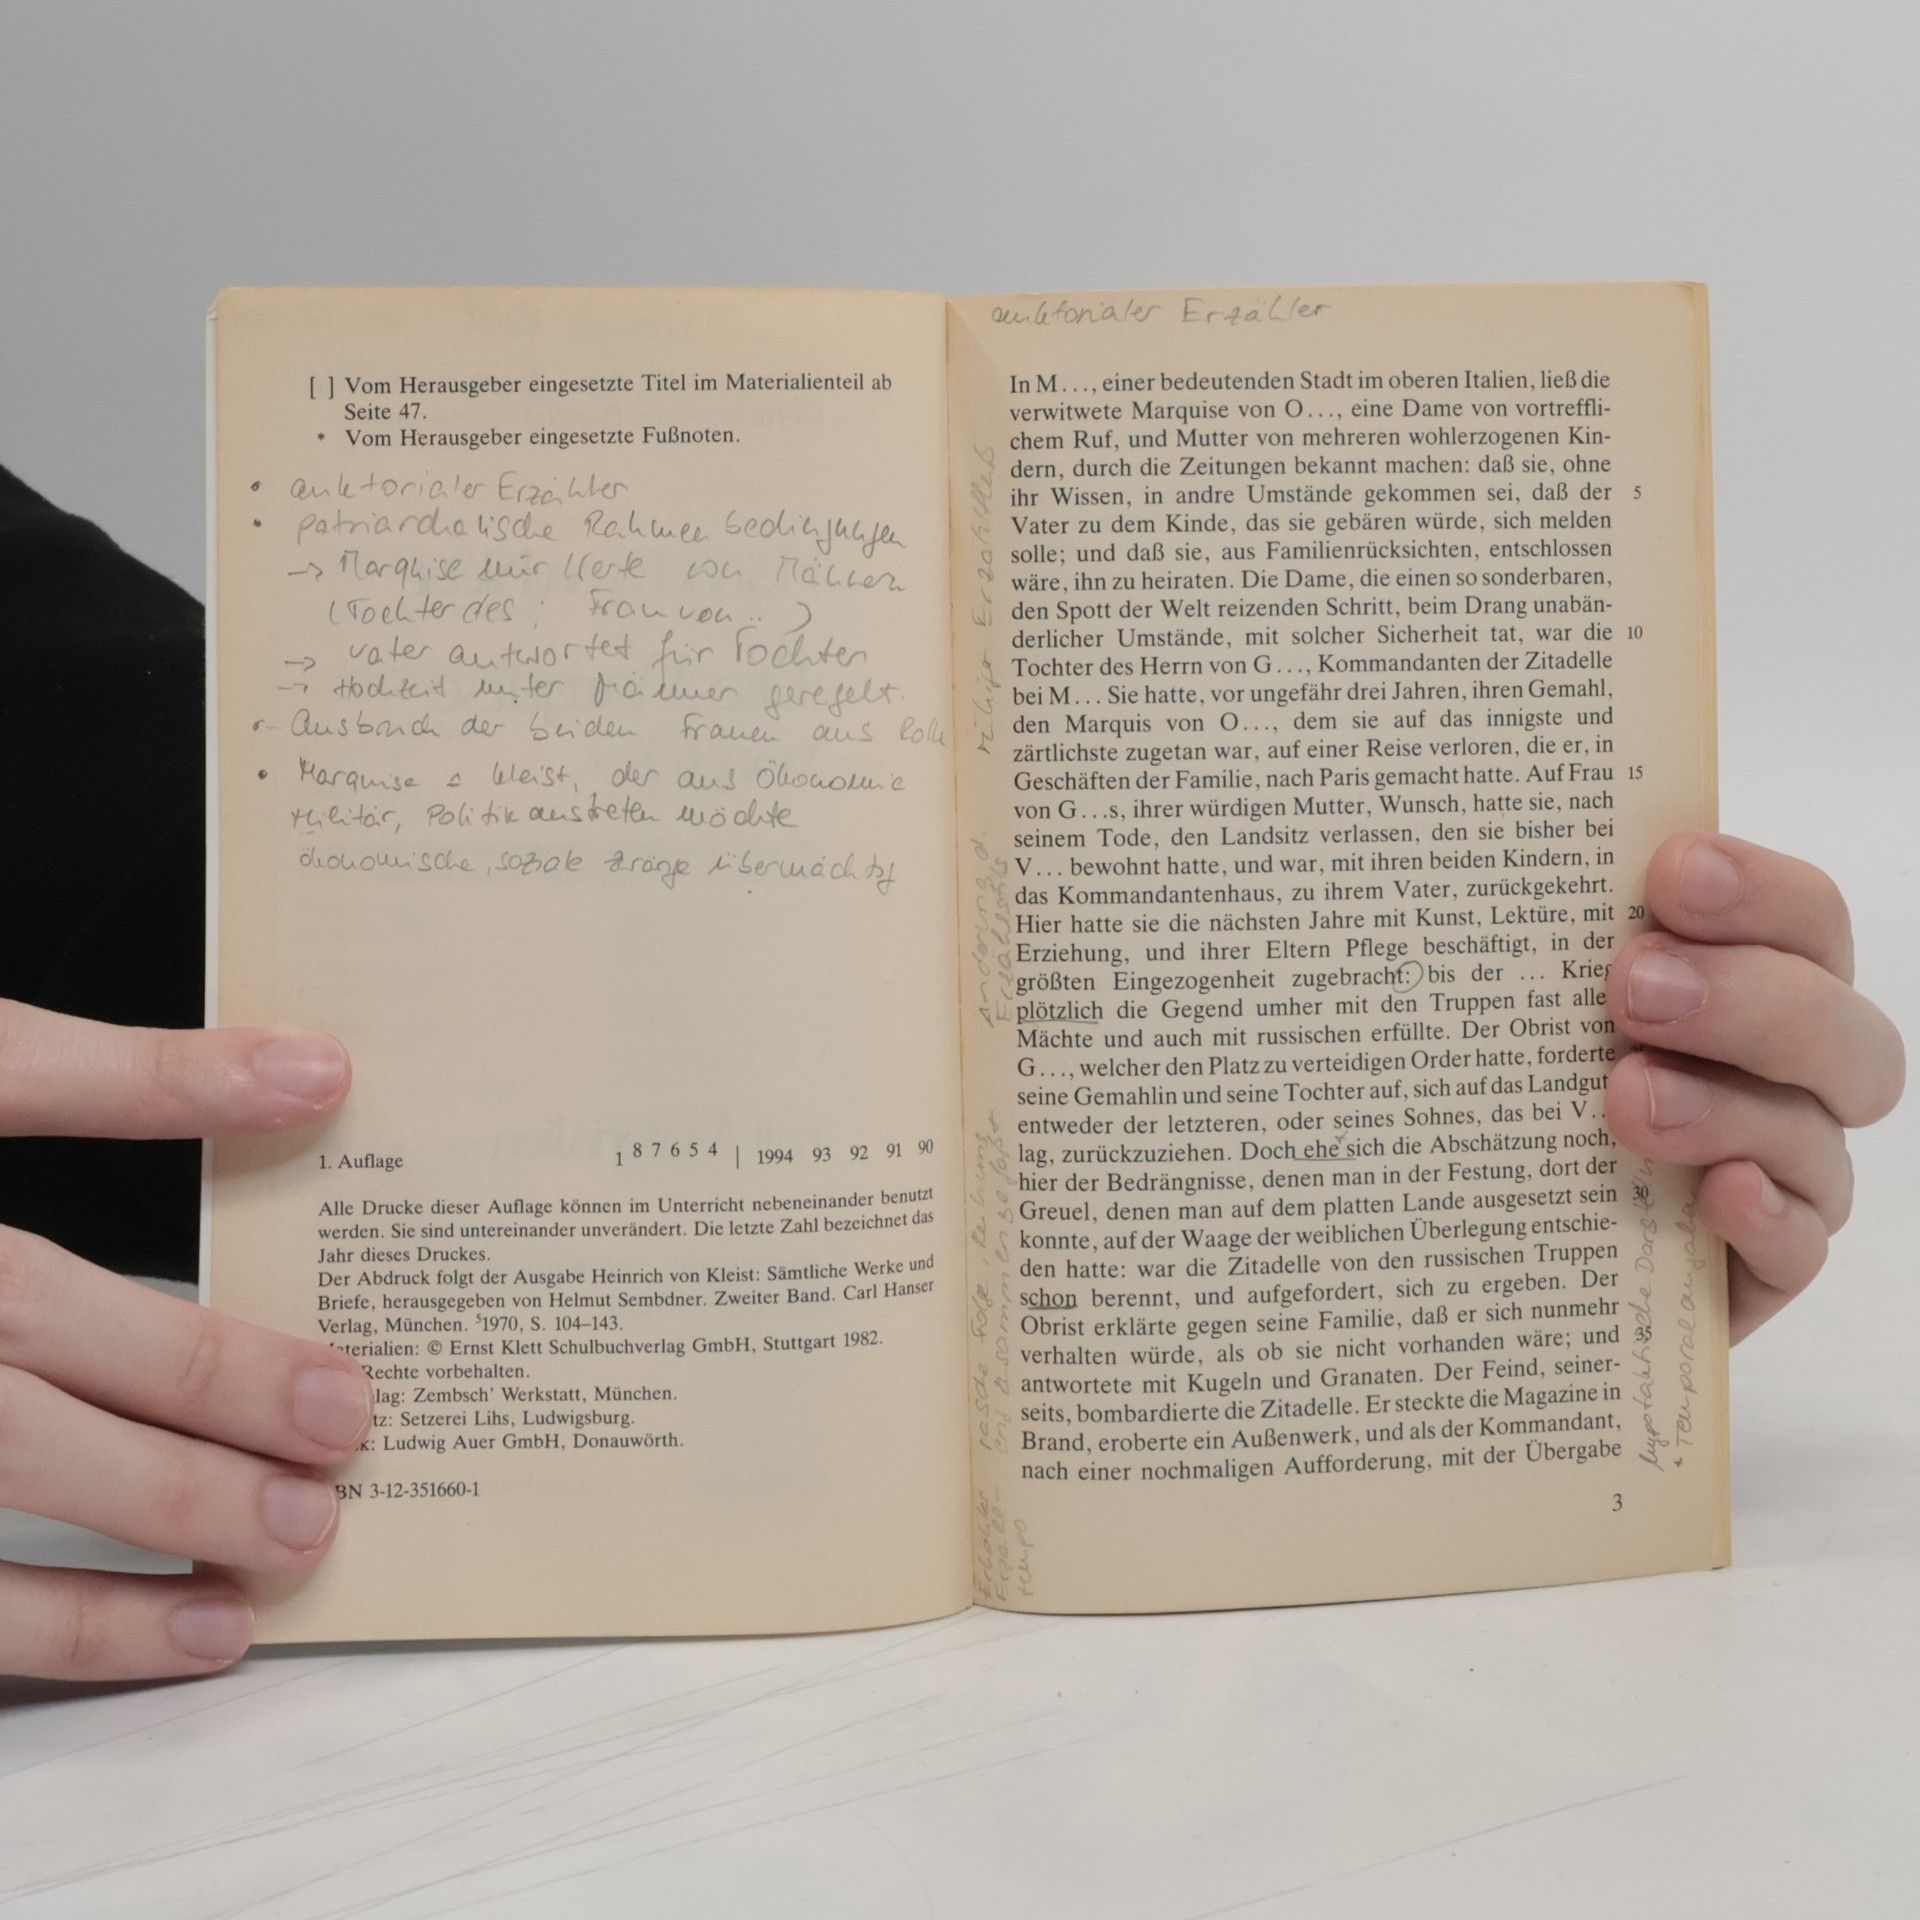 [ ] Vom Herausgeber eingesetzte Titel im Materialienteil ab
Seite 47.
* Vom Herausgeber eingesetzte Fußnoten.
• auktorialer Erzähler
• patriarchalische Rahmenbedingungen
→ Marquise nur Werte von Männern
(Tochter des ; Frau von .. )
→ Vater antwortet für Tochter
→ Hochzeit unter Männer geregelt.
Ausbruch der beiden Frauen aus Rolle
• Marquise ≙ Kleist, der aus Ökonomie
Militär, Politik austreten möchte
ökonomische, soziale übermächtig
1. Auflage 1 8 7 6 5 4 | 1994 93 92 91 90
Alle Drucke dieser Auflage können im Unterricht nebeneinander benutzt
werden. Sie sind untereinander unverändert. Die letzte Zahl bezeichnet das
Jahr dieses Druckes.
Der Abdruck folgt der Ausgabe Heinrich von Kleist: Sämtliche Werke und
Briefe, herausgegeben von Helmut Sembdner. Zweiter Band. Carl Hanser
Verlag, München. ⁵1970, S. 104–143.
aterialien: © Ernst Klett Schulbuchverlag GmbH, Stuttgart 1982.
Rechte vorbehalten.
lag: Zembsch' Werkstatt, München.
tz: Setzerei Lihs, Ludwigsburg.
k: Ludwig Auer GmbH, Donauwörth.
BN 3-12-351660-1
auktorialer Erzähler
In M..., einer bedeutenden Stadt im oberen Italien, ließ die
verwitwete Marquise von O..., eine Dame von vortreffli-
chem Ruf, und Mutter von mehreren wohlerzogenen Kin-
dern, durch die Zeitungen bekannt machen: daß sie, ohne
ihr Wissen, in andre Umstände gekommen sei, daß der 5
Vater zu dem Kinde, das sie gebären würde, sich melden
solle; und daß sie, aus Familienrücksichten, entschlossen
wäre, ihn zu heiraten. Die Dame, die einen so sonderbaren,
den Spott der Welt reizenden Schritt, beim Drang unabän-
derlicher Umstände, mit solcher Sicherheit tat, war die 10
Tochter des Herrn von G..., Kommandanten der Zitadelle
bei M... Sie hatte, vor ungefähr drei Jahren, ihren Gemahl,
den Marquis von O..., dem sie auf das innigste und
zärtlichste zugetan war, auf einer Reise verloren, die er, in
Geschäften der Familie, nach Paris gemacht hatte. Auf Frau 15
von G...s, ihrer würdigen Mutter, Wunsch, hatte sie, nach
seinem Tode, den Landsitz verlassen, den sie bisher bei
V... bewohnt hatte, und war, mit ihren beiden Kindern, in
das Kommandantenhaus, zu ihrem Vater, zurückgekehrt.
Hier hatte sie die nächsten Jahre mit Kunst, Lektüre, mit 20
Erziehung, und ihrer Eltern Pflege beschäftigt, in der
größten Eingezogenheit zugebracht: bis der ... Krieg
plötzlich die Gegend umher mit den Truppen fast alle
Mächte und auch mit russischen erfüllte. Der Obrist von
G..., welcher den Platz zu verteidigen Order hatte, forderte
seine Gemahlin und seine Tochter auf, sich auf das Landgut
entweder der letzteren, oder seines Sohnes, das bei V..
lag, zurückzuziehen. Doch ehe sich die Abschätzung noch,
hier der Bedrängnisse, denen man in der Festung, dort der
Greuel, denen man auf dem platten Lande ausgesetzt sein 30
konnte, auf der Waage der weiblichen Überlegung entschie-
den hatte: war die Zitadelle von den russischen Truppen
schon berennt, und aufgefordert, sich zu ergeben. Der
Obrist erklärte gegen seine Familie, daß er sich nunmehr
verhalten würde, als ob sie nicht vorhanden wäre; und 35
antwortete mit Kugeln und Granaten. Der Feind, seiner-
seits, bombardierte die Zitadelle. Er steckte die Magazine in
Brand, eroberte ein Außenwerk, und als der Kommandant,
nach einer nochmaligen Aufforderung, mit der Übergabe
3
ruhiger Erzählfluß
Änderung d.
Erzählstils
rasche Folge, Reihung
Erzähltempo
hypotaktische
+ Temporalangaben